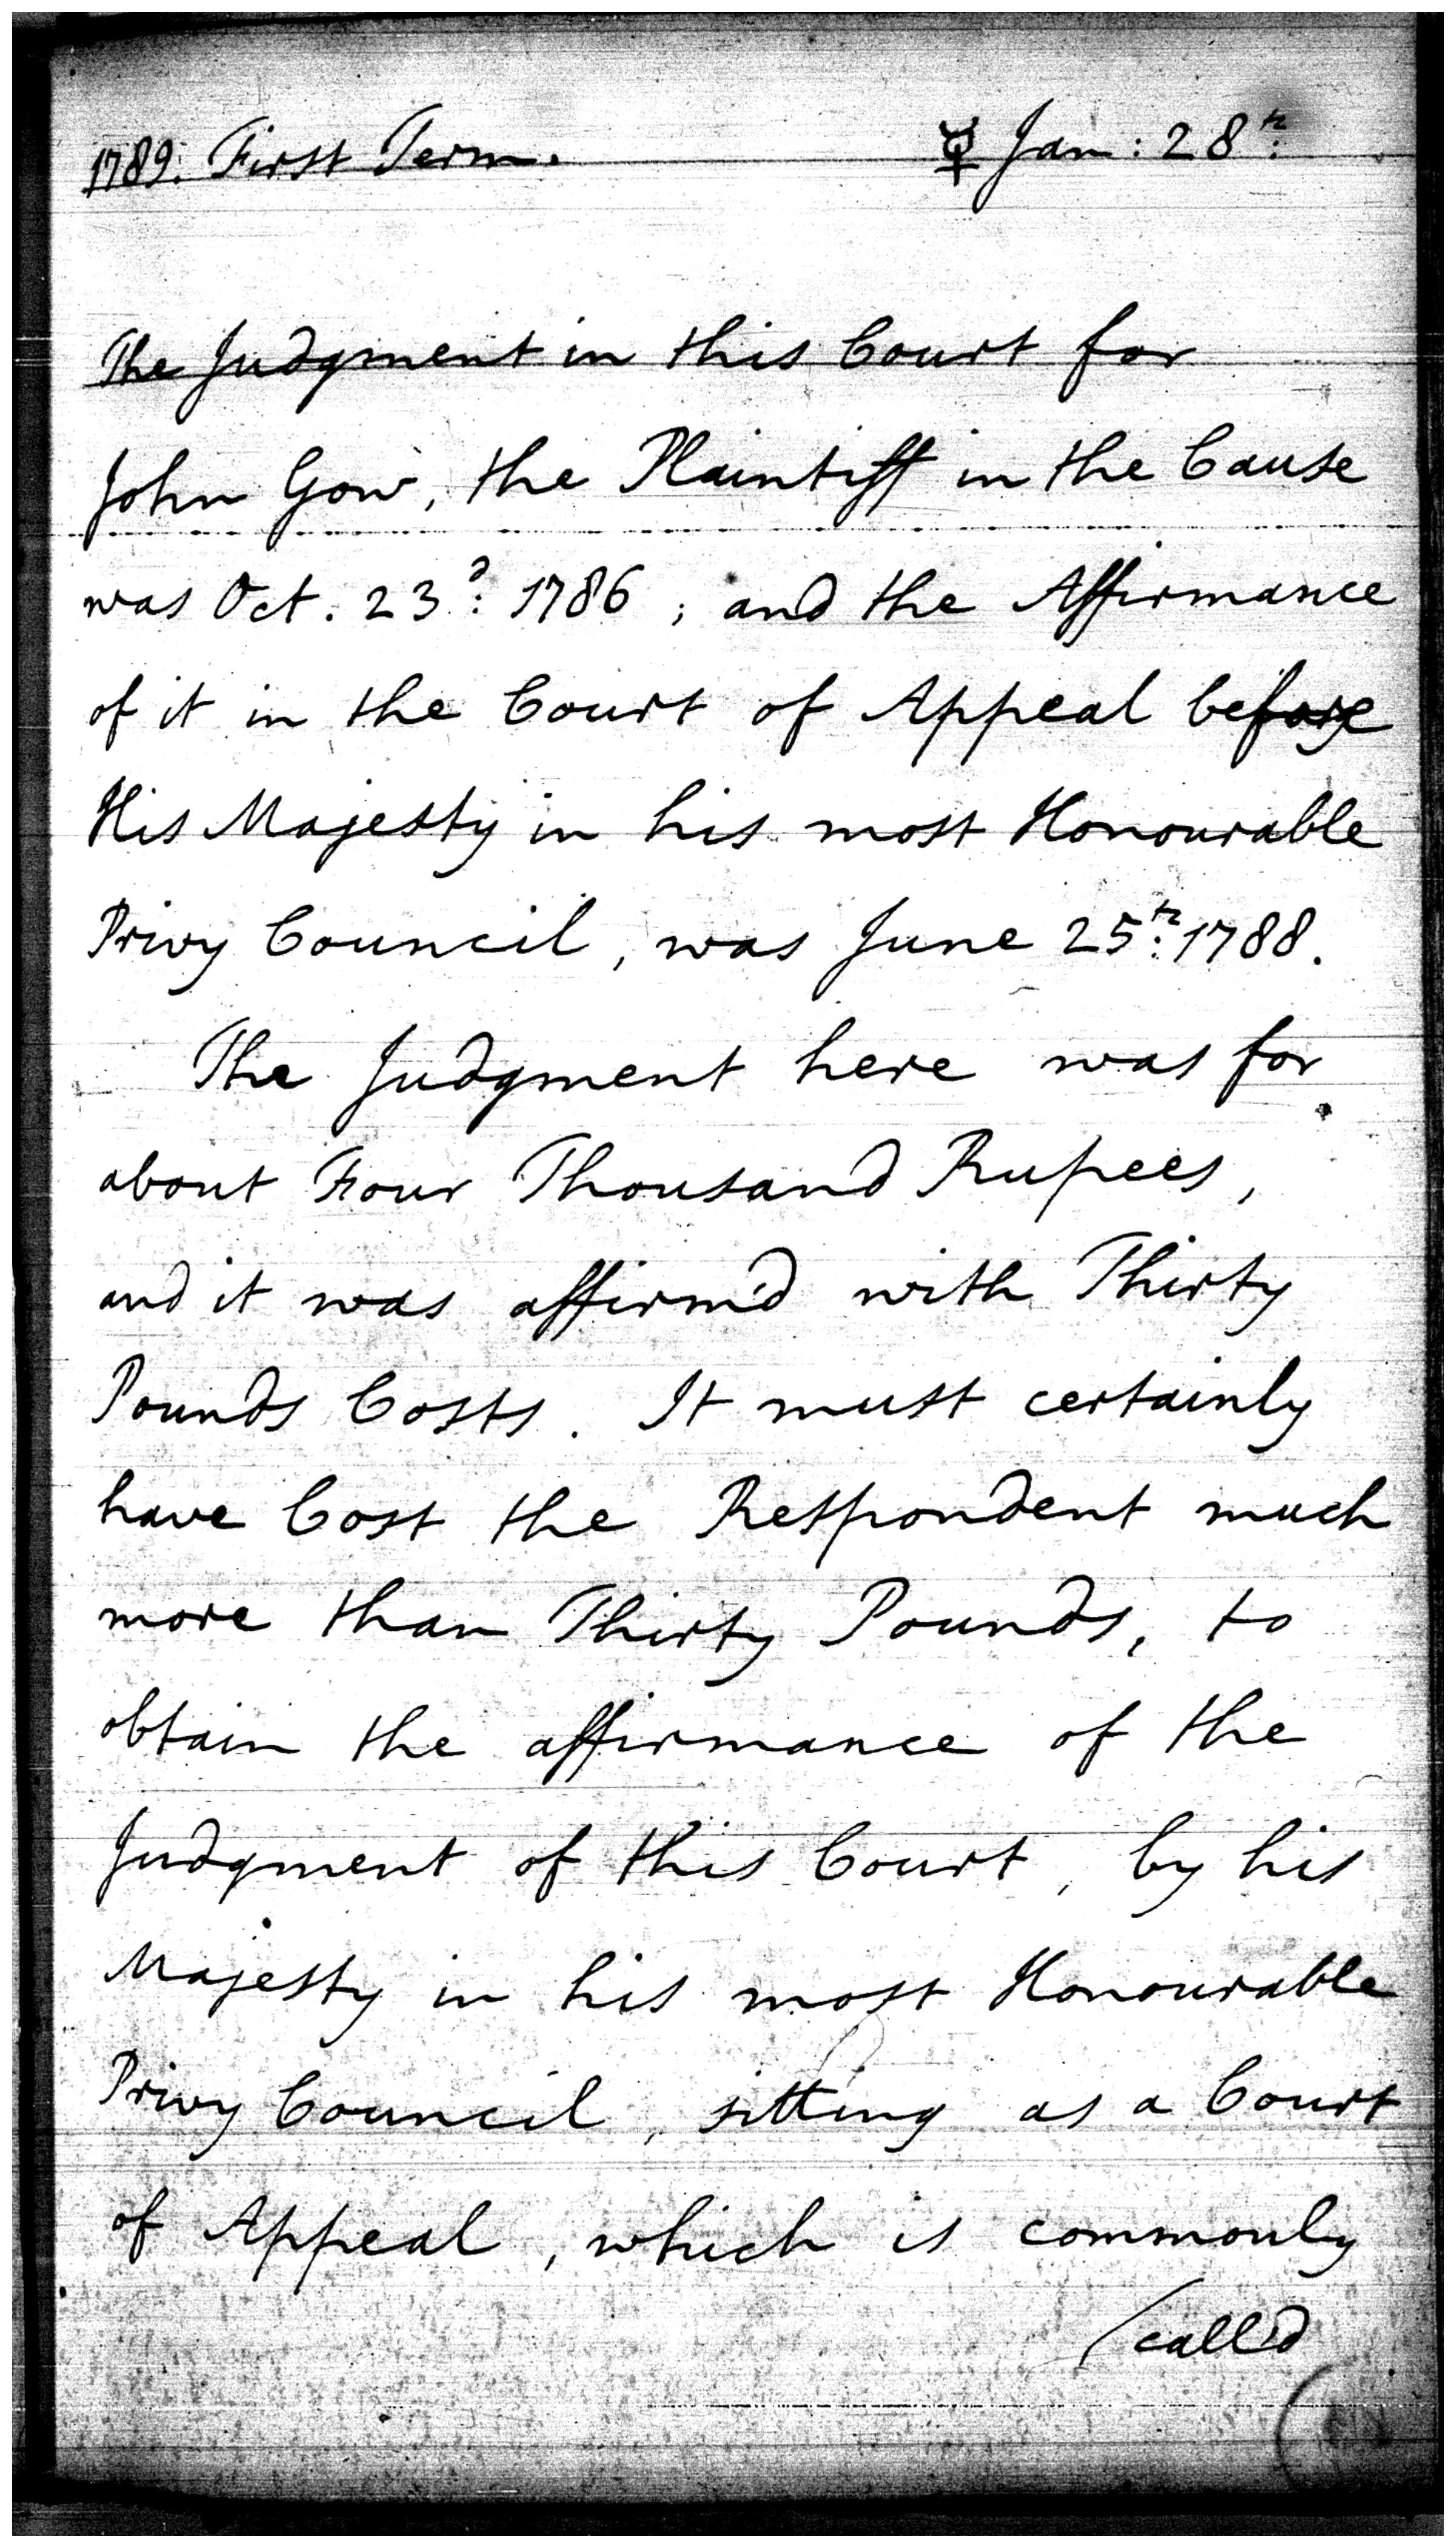 1789. First Term. ☿ Jan: 28th:
The Judgment in this Court for
John Gow, the Plaintiff in the Cause
was Oct. 23d: 1786; and the Affirmance
of it in the Court of Appeal before
His Majesty in his most Honourable
Privy Council, was June 25th: 1788.
The Judgment here was for
about Four Thousand Rupees,
and it was affirm'd with Thirty
Pounds Costs. It must certainly
have Cost the Respondent much
more than Thirty Pounds, to
obtain the affirmance of the
Judgment of this Court, by his
Majesty in his most Honourable
Privy Council, sitting as a Court
of Appeal, which is commonly
/call'd